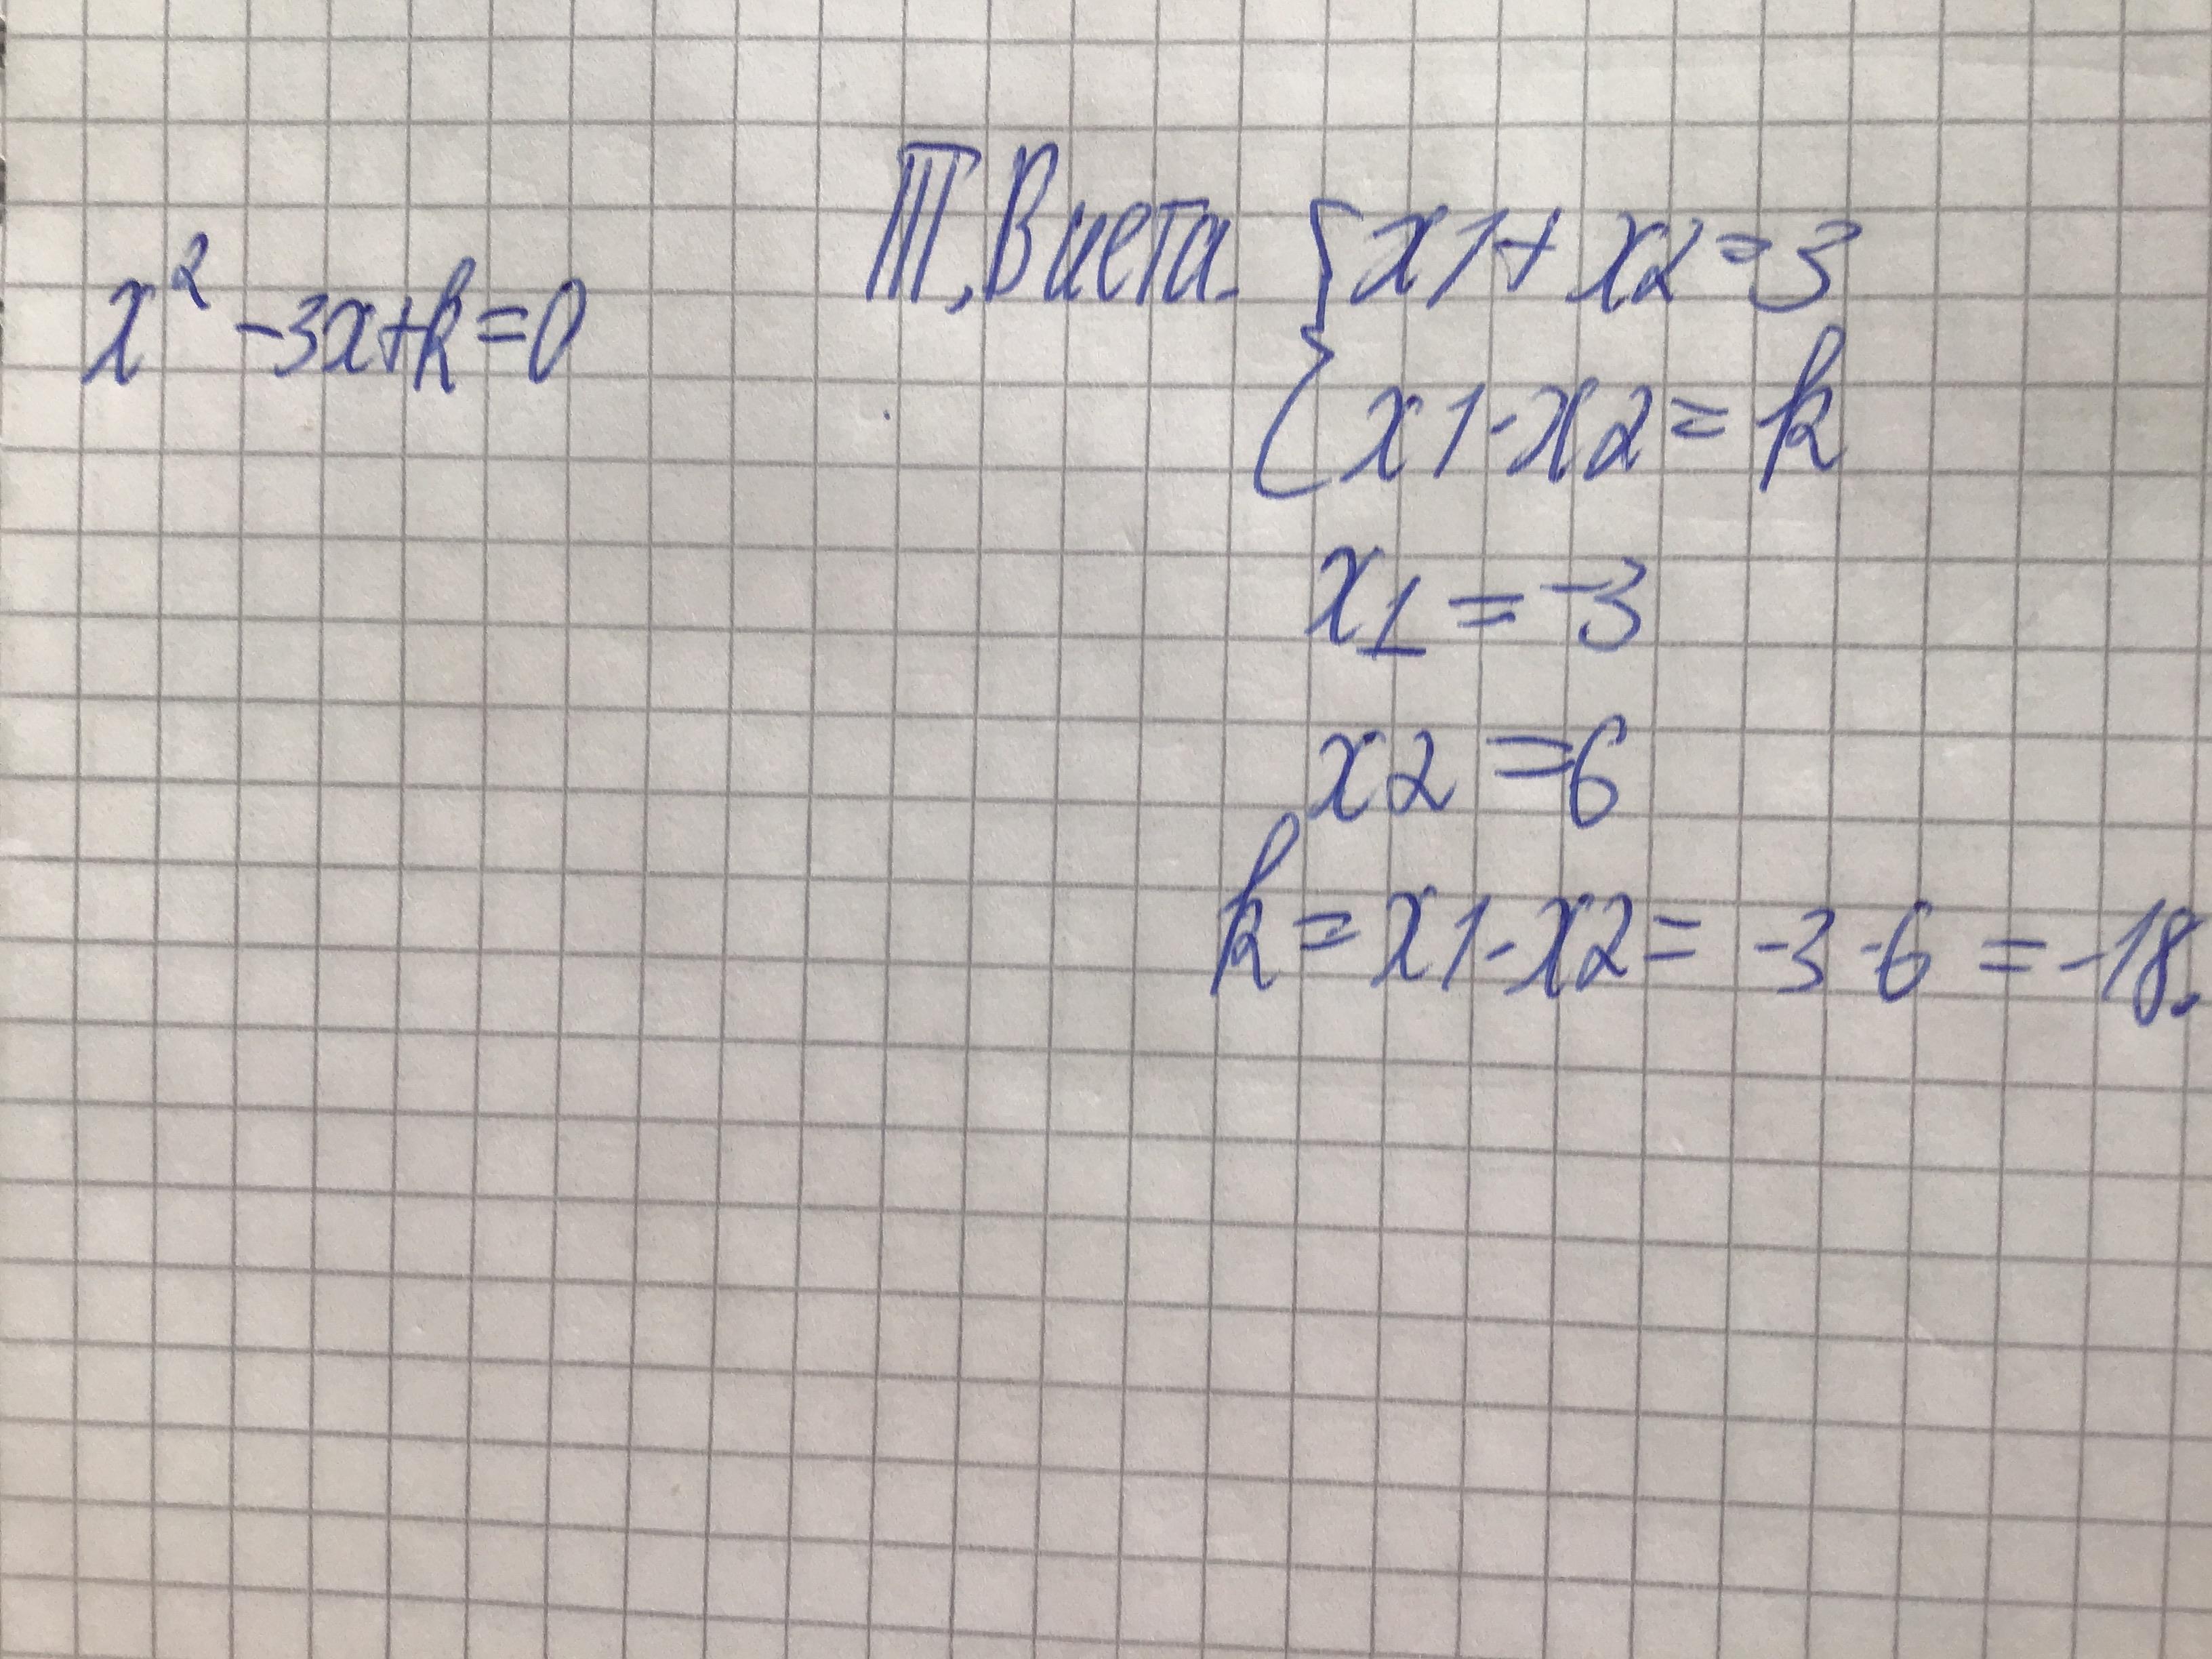 x² -3x+k=0
Т, Виета. {x1+x2=3
x1·x2=k
x1=-3
x2=6
k=x1·x2=-3·6=-18.